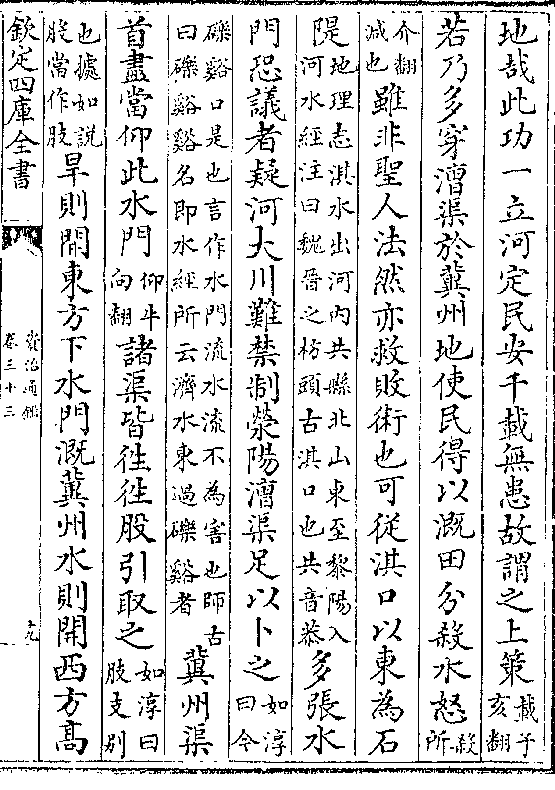 地哉此功一立河定民安千載無患故謂之上策載子亥翻
若乃多穿漕渠於冀州地使民得以溉田分殺水怒殺所
介翻減也雖非聖人法然亦救敗術也可從淇口以東為石
隄地理志淇水出河内共縣北山東至黎陽入河水經注曰魏晉之枋頭古淇口也共音恭多張水
門恐議者疑河大川難禁制滎陽漕渠足以卜之如淳曰今
礫谿口是也言作水門流水流不為害也師古曰礫谿谿名即水經所云濟水東過礫谿者冀州渠
首盡當仰此水門仰牛向翻諸渠皆往往股引取之如淳曰股支别
也據如說股當作肢旱則開東方下水門溉冀州水則開西方高
欽定四庫全書
資治通鑑
卷三十三
十九